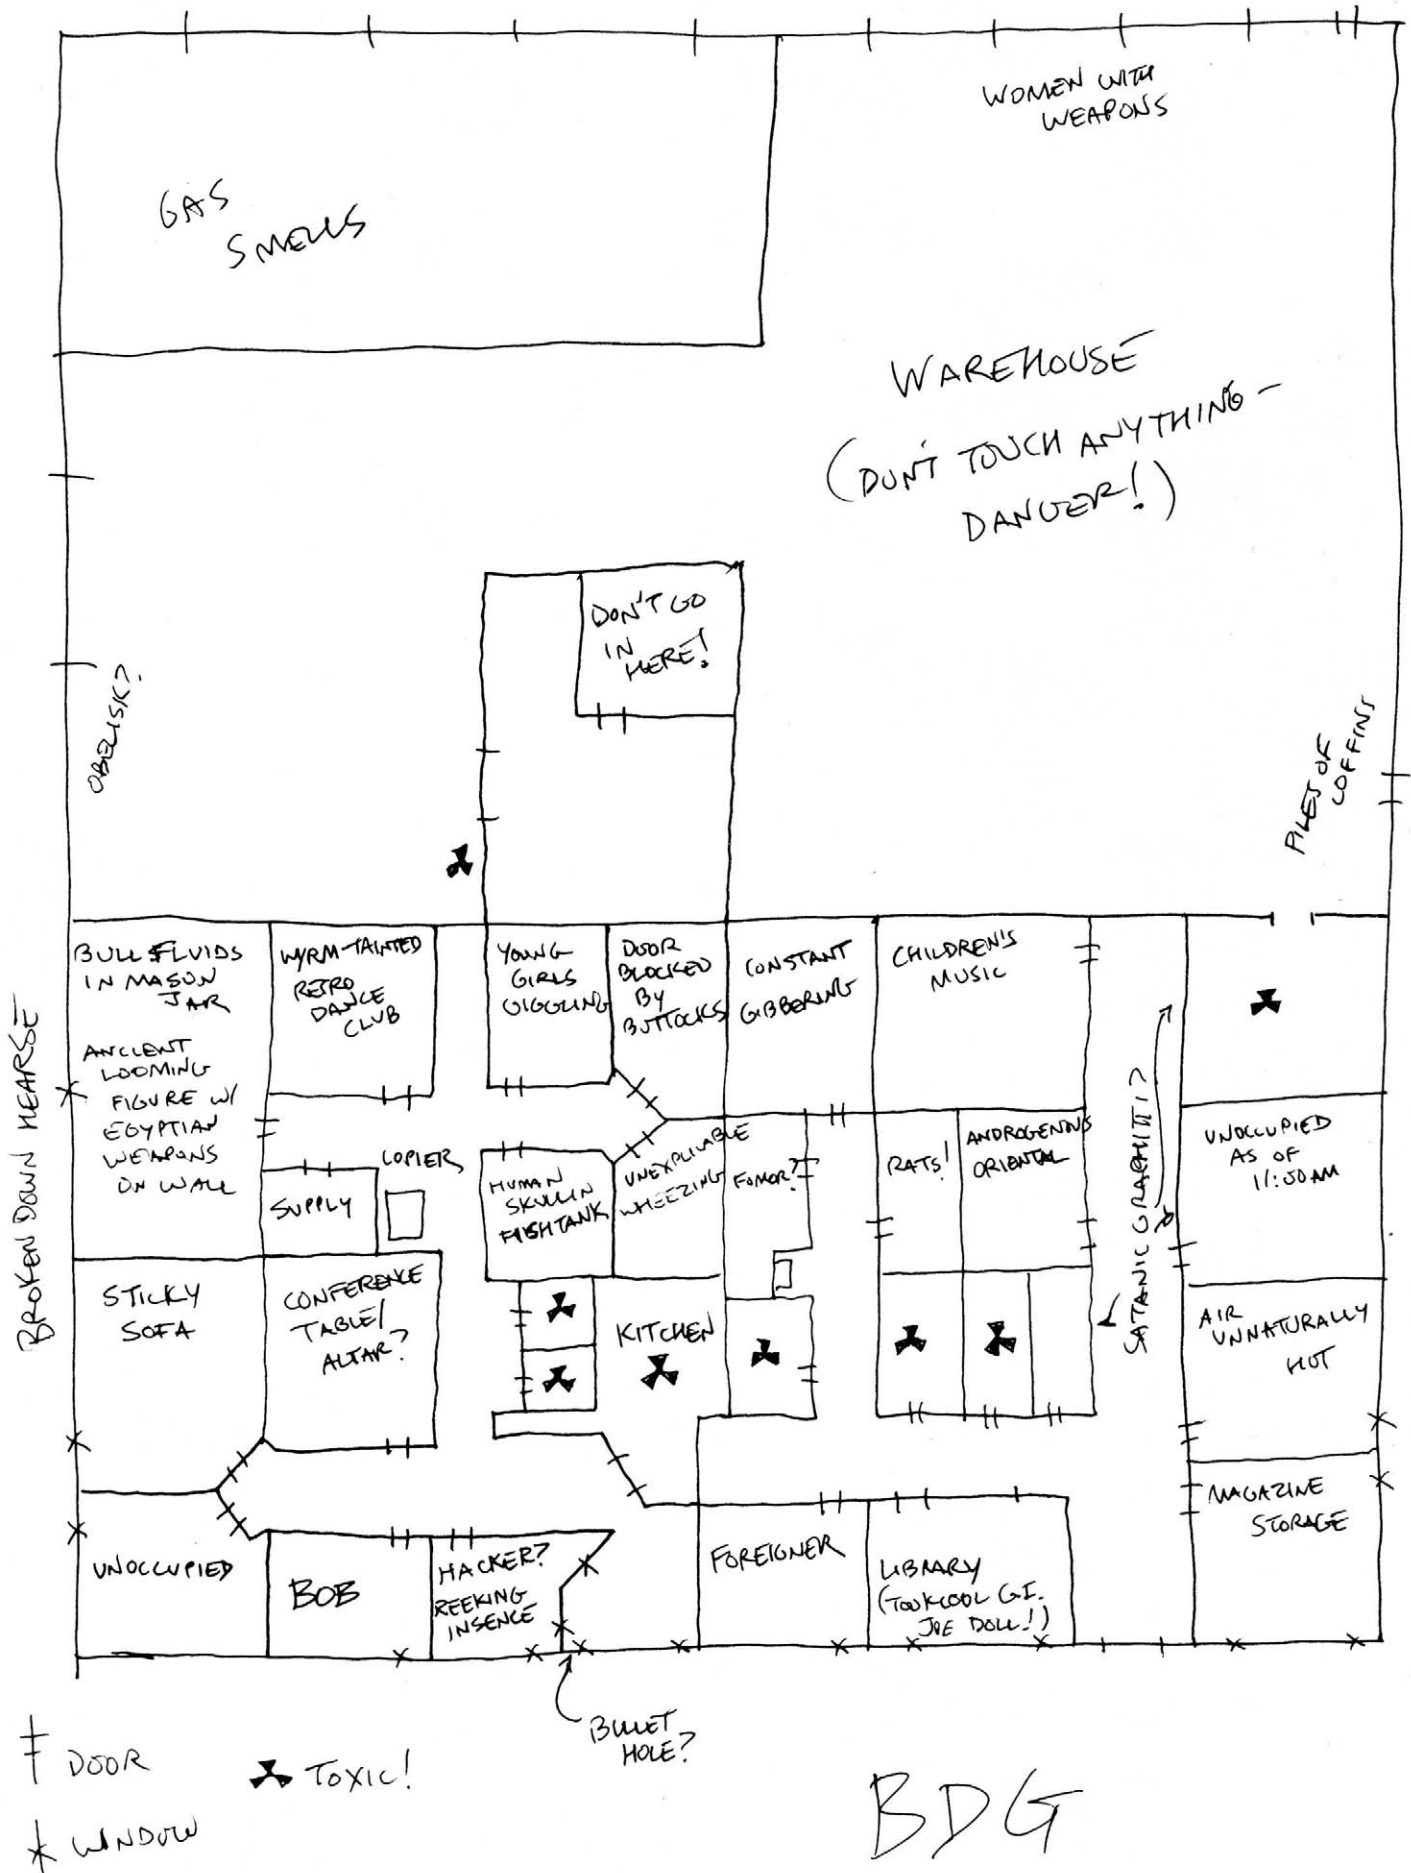 WOMEN WITH
WEAPONS
GAS
SMELLS
WAREHOUSE
(DON'T TOUCH ANYTHING -
DANGER!)
DON'T GO
IN
HERE!
OBELISK?
PILES OF
COFFINS
BROKEN DOWN HEARSE
BULL FLUIDS
IN MASON
JAR
ANCIENT
LOOMING
FIGURE W/
EGYPTIAN
WEAPONS
ON WALL
WYRM-TAINTED
RETRO
DANCE
CLUB
YOUNG
GIRLS
GIGGLING
DOOR
BLOCKED
BY
BUTTOCKS
CONSTANT
GIBBERING
CHILDREN'S
MUSIC
SATANIC GRAPHITI?
SUPPLY
COPIER
HUMAN
SKULL IN
FISHTANK
UNEXPLICABLE
WHEEZING
FOMOR?
RATS!
ANDROGENOUS
ORIENTAL
UNOCCUPIED
AS OF
11:00AM
STICKY
SOFA
CONFERENCE
TABLE/
ALTAR?
KITCHEN
AIR
UNNATURALLY
HOT
MAGAZINE
STORAGE
UNOCCUPIED
BOB
HACKER?
REEKING
INSENCE
FOREIGNER
LIBRARY
(TOOK COOL G.I.
JOE DOLL!)
BULLET
HOLE?
DOOR
TOXIC!
WINDOW
BDG